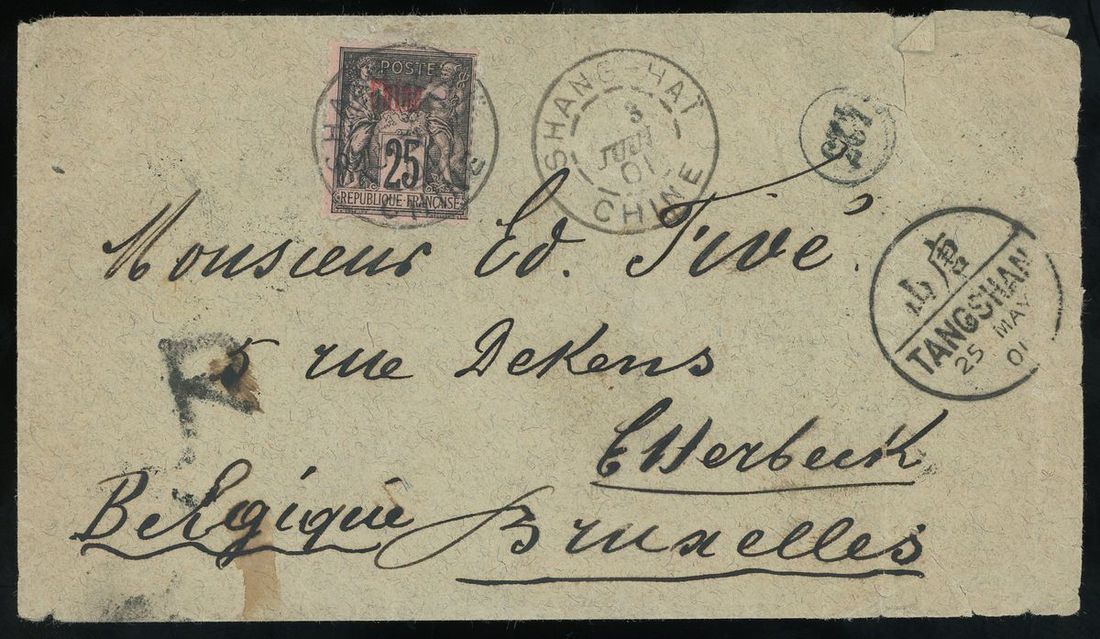 POSTE
25
REPUBLIQUE FRANÇAISE
SHANG-HAI
3
JUIN
01
CHINE
Monsieur Ed. Tivé.
5 rue Dekens
Etterbeek
Belgique Bruxelles
唐山
TANGSHAN
25 MAY 01
R